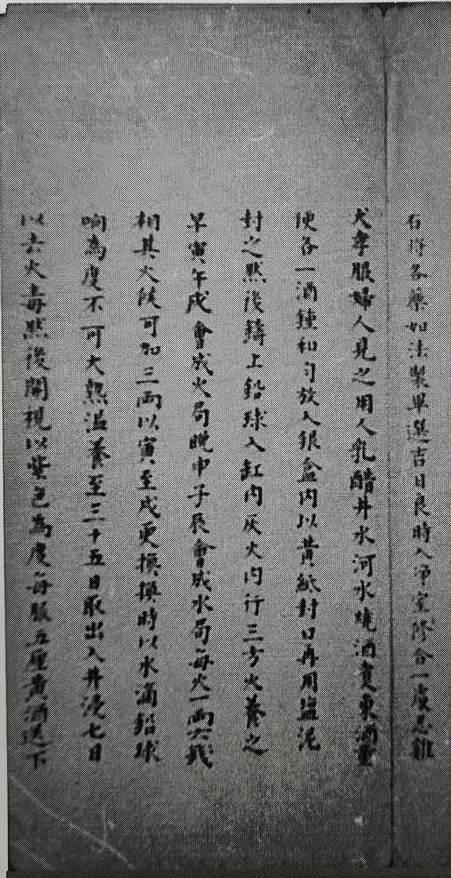 右將各藥如法製畢選吉日良時入淨室修合一處忌雞
犬孝服婦人見之用人乳醋井水河水燒酒東酒童
便各一酒鍾和勻放入銀盒內以黃紙封口再用塩泥
封之然後鑄上鉛球入缸內灰火內行三方火養之
早寅午戌會成火局晚申子辰會成水局每火一兩六錢
相其火候可加三兩以寅至戌更換換時以水滴鉛球
响為度不可大熱溫養至三十五日取出入井浸七日
以去火毒然後開視以紫色為度每服五厘黃酒送下